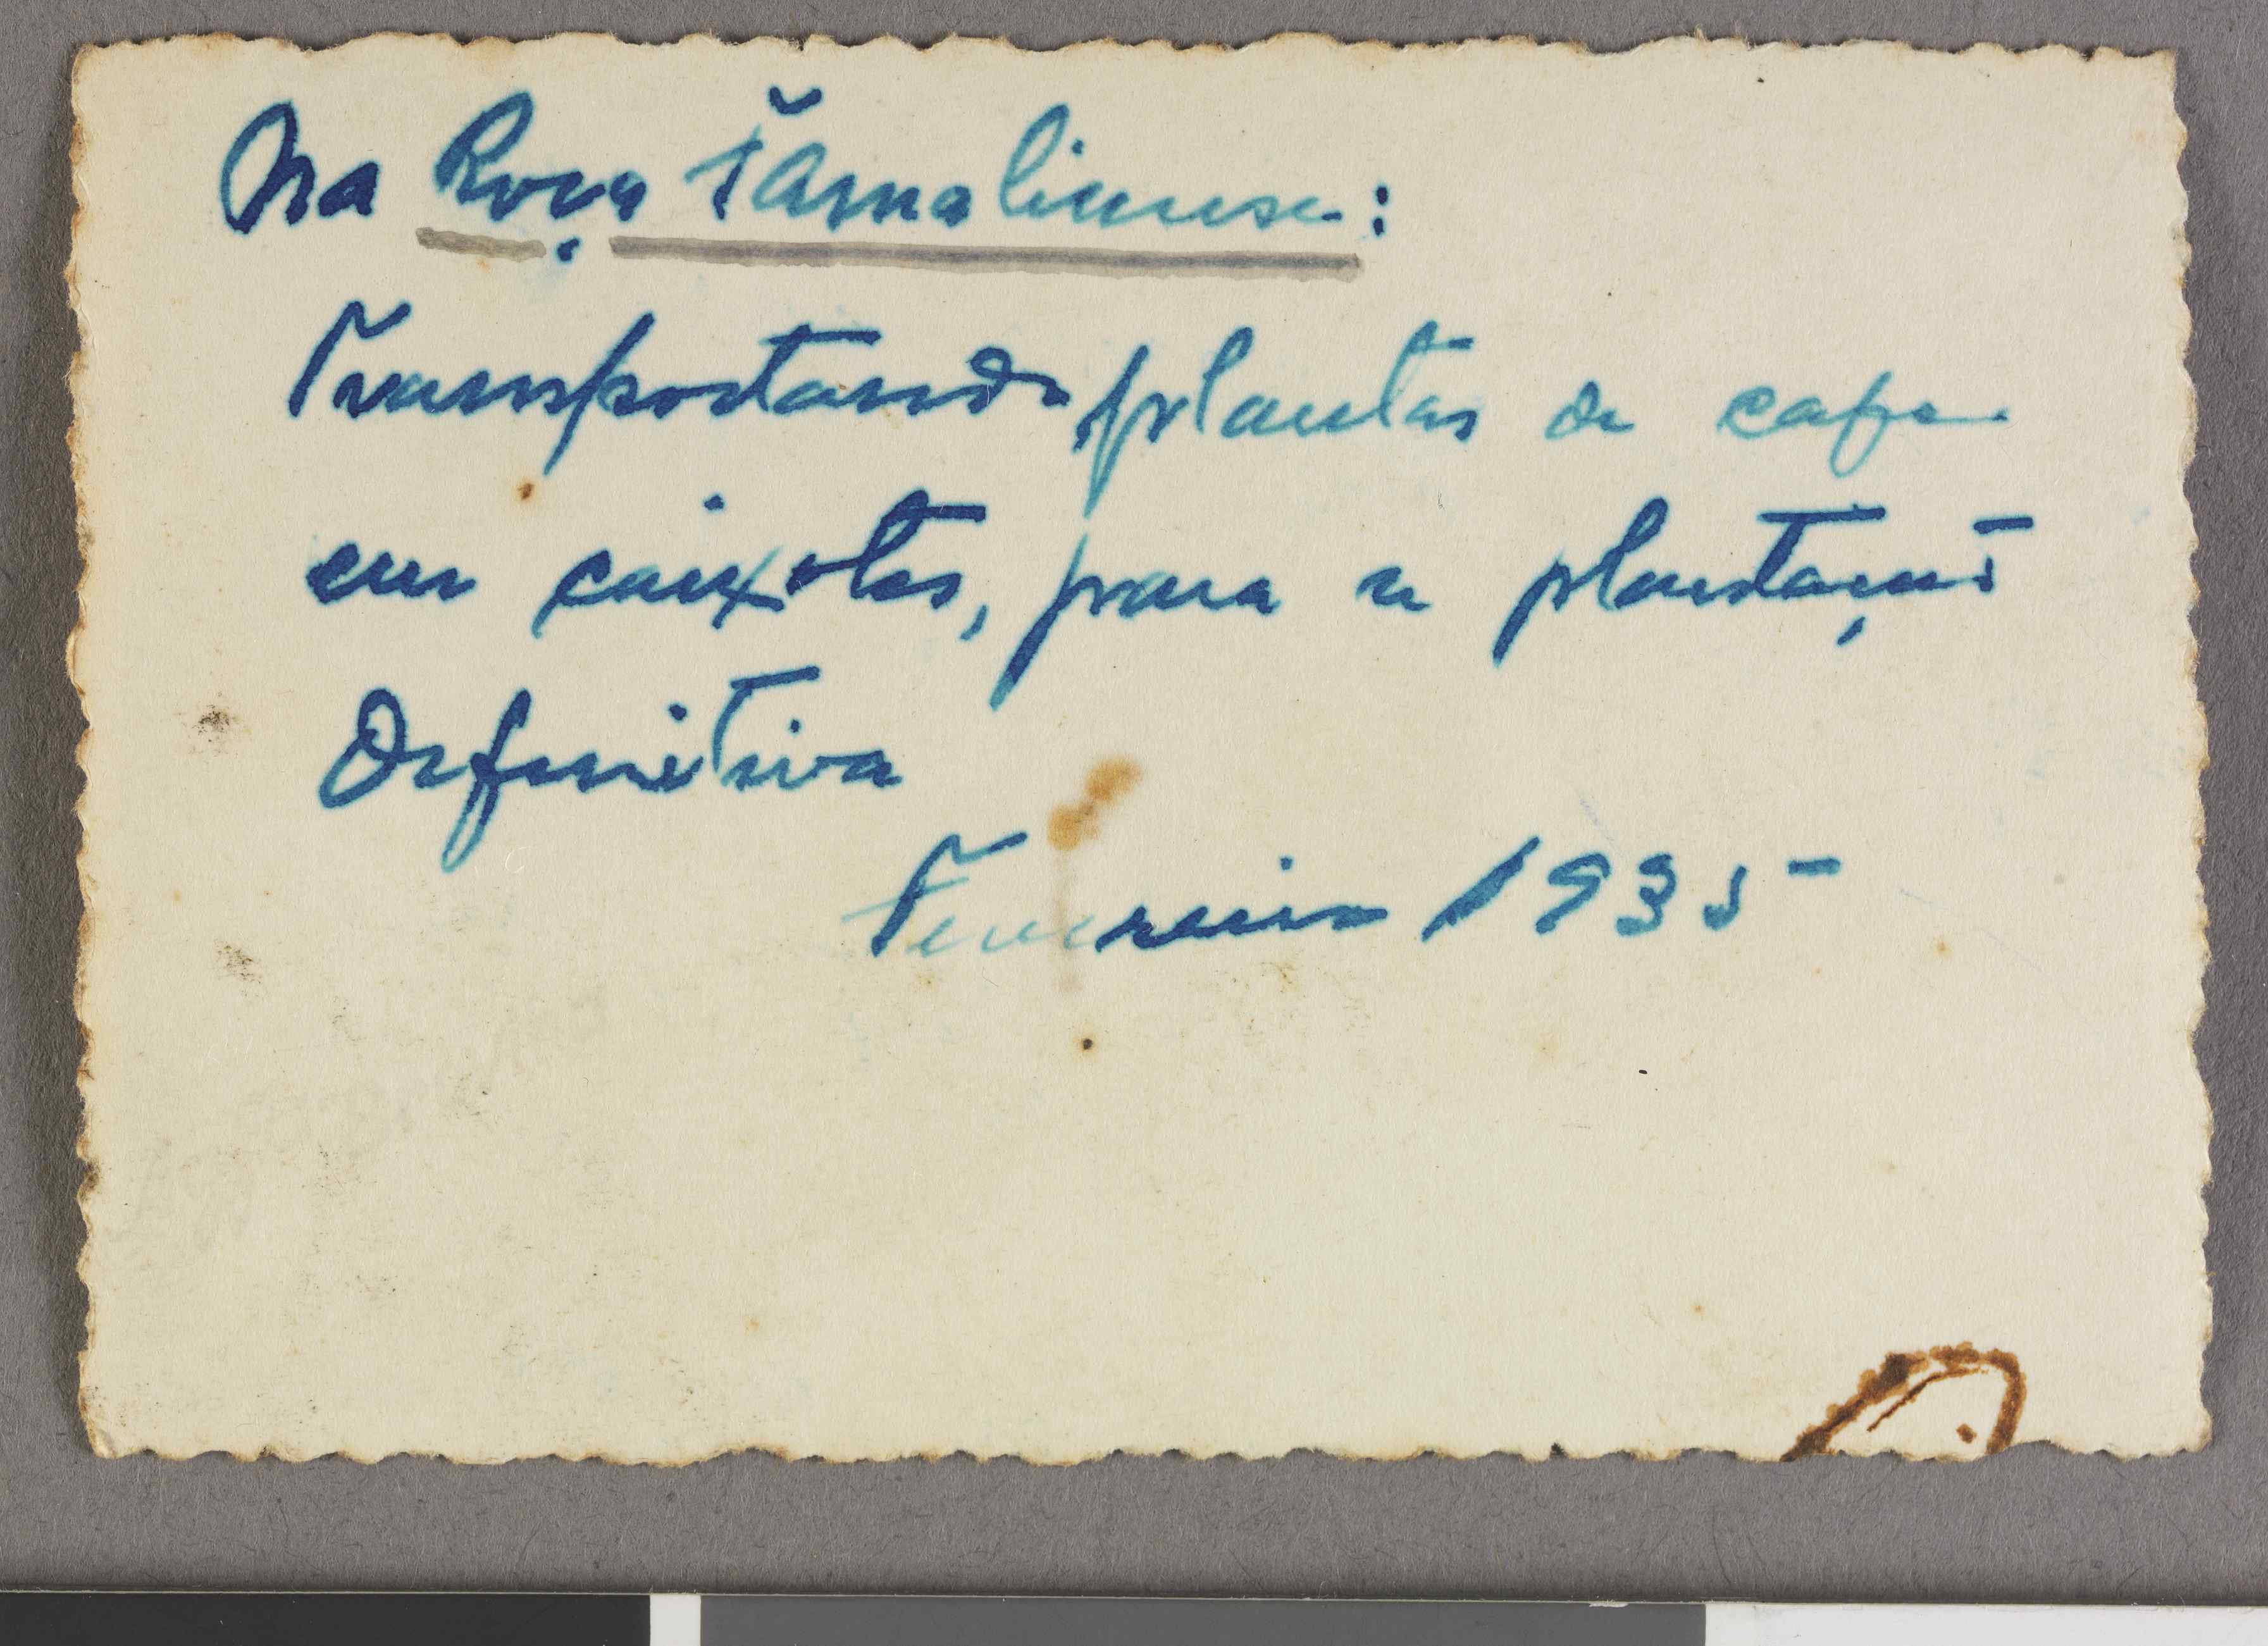 Na Roça Tamalinense:
Transportando plantas de cafe
em caixotes, para a plantação
Definitiva
Fevereiro 1935